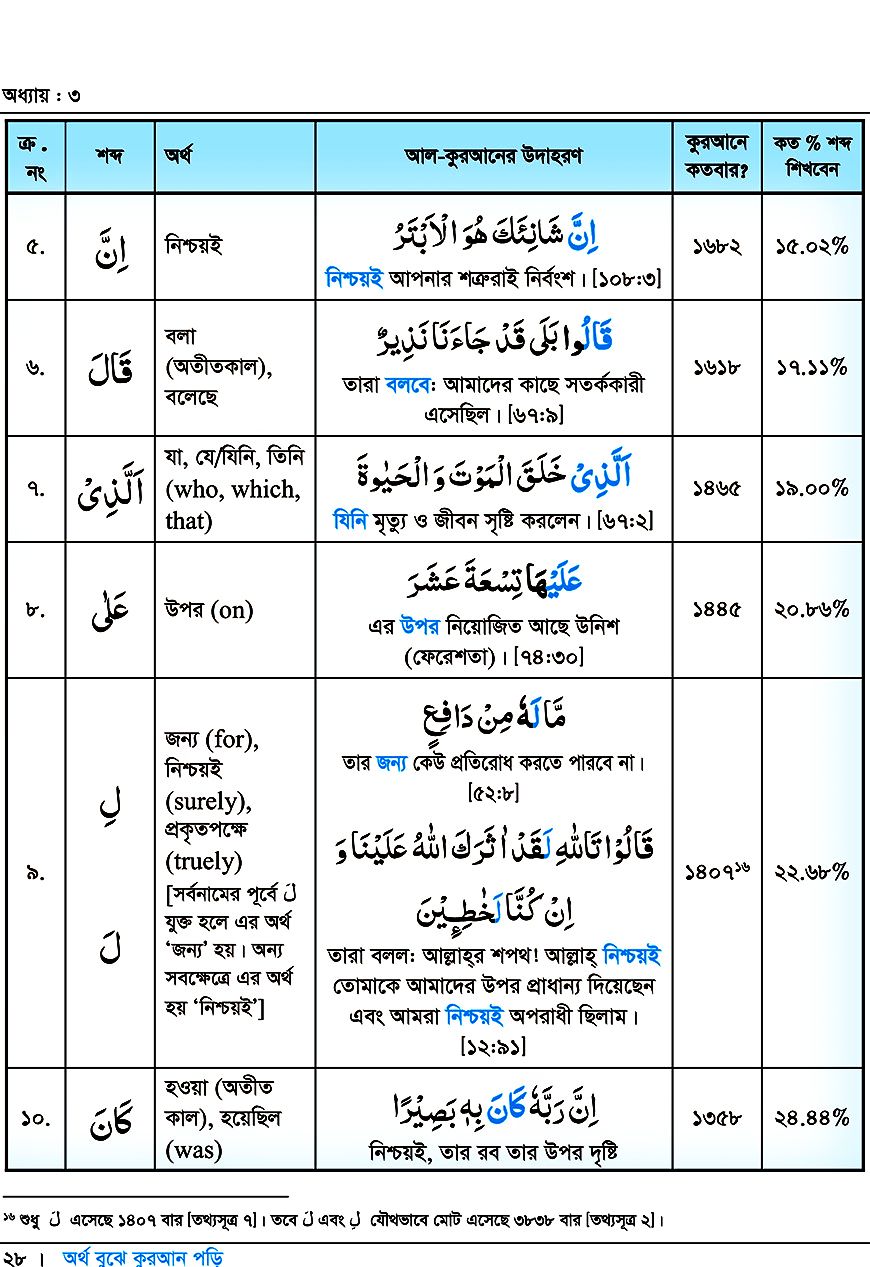 অধ্যায় : ৩
ক্র .
নং
শব্দ
অর্থ
আল-কুরআনের উদাহরণ
কুরআনে
কতবার?
কত % শব্দ
শিখবেন
৫.
اِنَّ
নিশ্চয়ই
اِنَّ شَانِئَكَ هُوَ الْاَبْتَرُ
নিশ্চয়ই আপনার শত্রুরাই নির্বংশ। [১০৮:৩]
১৬৮২
১৫.০২%
৬.
قَالَ
বলা
(অতীতকাল),
বলেছে
قَالُوا بَلَى قَدْ جَاءَنَا نَذِيرٌ
তারা বলবে: আমাদের কাছে সতর্ককারী
এসেছিল। [৬৭:৯]
১৬১৮
১৭.১১%
৭.
اَلَّذِىْ
যা, যে/যিনি, তিনি
(who, which,
that)
اَلَّذِىْ خَلَقَ الْمَوْتَ وَ الْحَيٰوةَ
যিনি মৃত্যু ও জীবন সৃষ্টি করলেন। [৬৭:২]
১৪৬৫
১৯.০০%
৮.
عَلٰى
উপর (on)
عَلَيْهَا تِسْعَةَ عَشَرَ
এর উপর নিয়োজিত আছে উনিশ
(ফেরেশতা)। [৭৪:৩০]
১৪৪৫
২০.৮৬%
৯.
لِ
لَ
জন্য (for),
নিশ্চয়ই
(surely),
প্রকৃতপক্ষে
(truely)
[সর্বনামের পূর্বে لَ
যুক্ত হলে এর অর্থ
‘জন্য’ হয়। অন্য
সবক্ষেত্রে এর অর্থ
হয় ‘নিশ্চয়ই’]
مَّا لَهٗ مِنْ دَافِعٍ
তার জন্য কেউ প্রতিরোধ করতে পারবে না।
[৫২:৮]
قَالُوْا تَاللهِ لَقَدْ اٰثَرَكَ اللهُ عَلَيْنَا وَ
اِنْ كُنَّا لَخٰطِـِٕيْنَ
তারা বলল: আল্লাহ্‌র শপথ! আল্লাহ্ নিশ্চয়ই
তোমাকে আমাদের উপর প্রাধান্য দিয়েছেন
এবং আমরা নিশ্চয়ই অপরাধী ছিলাম।
[১২:৯১]
১৪০৭১৬
২২.৬৮%
১০.
كَانَ
হওয়া (অতীত
কাল), হয়েছিল
(was)
اِنَّ رَبَّهٗ كَانَ بِهٖ بَصِيْرًا
নিশ্চয়ই, তার রব তার উপর দৃষ্টি
১৩৫৮
২৪.৪৪%
১৬ শুধু لَ এসেছে ১৪০৭ বার [তথ্যসূত্র ৭]। তবে لَ এবং لِ যৌথভাবে মোট এসেছে ৩৮৩৮ বার [তথ্যসূত্র ২]।
২৮ । অর্থ বুঝে কুরআন পড়ি